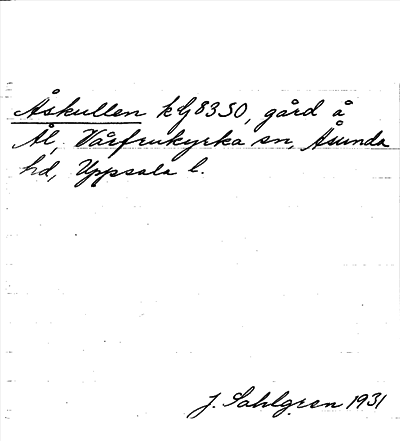 Åskullen k bj 8350, gård å
Ål, Vårfrukyrka sn, Åsunda
hd, Uppsala l.
J. Sahlgren 1931